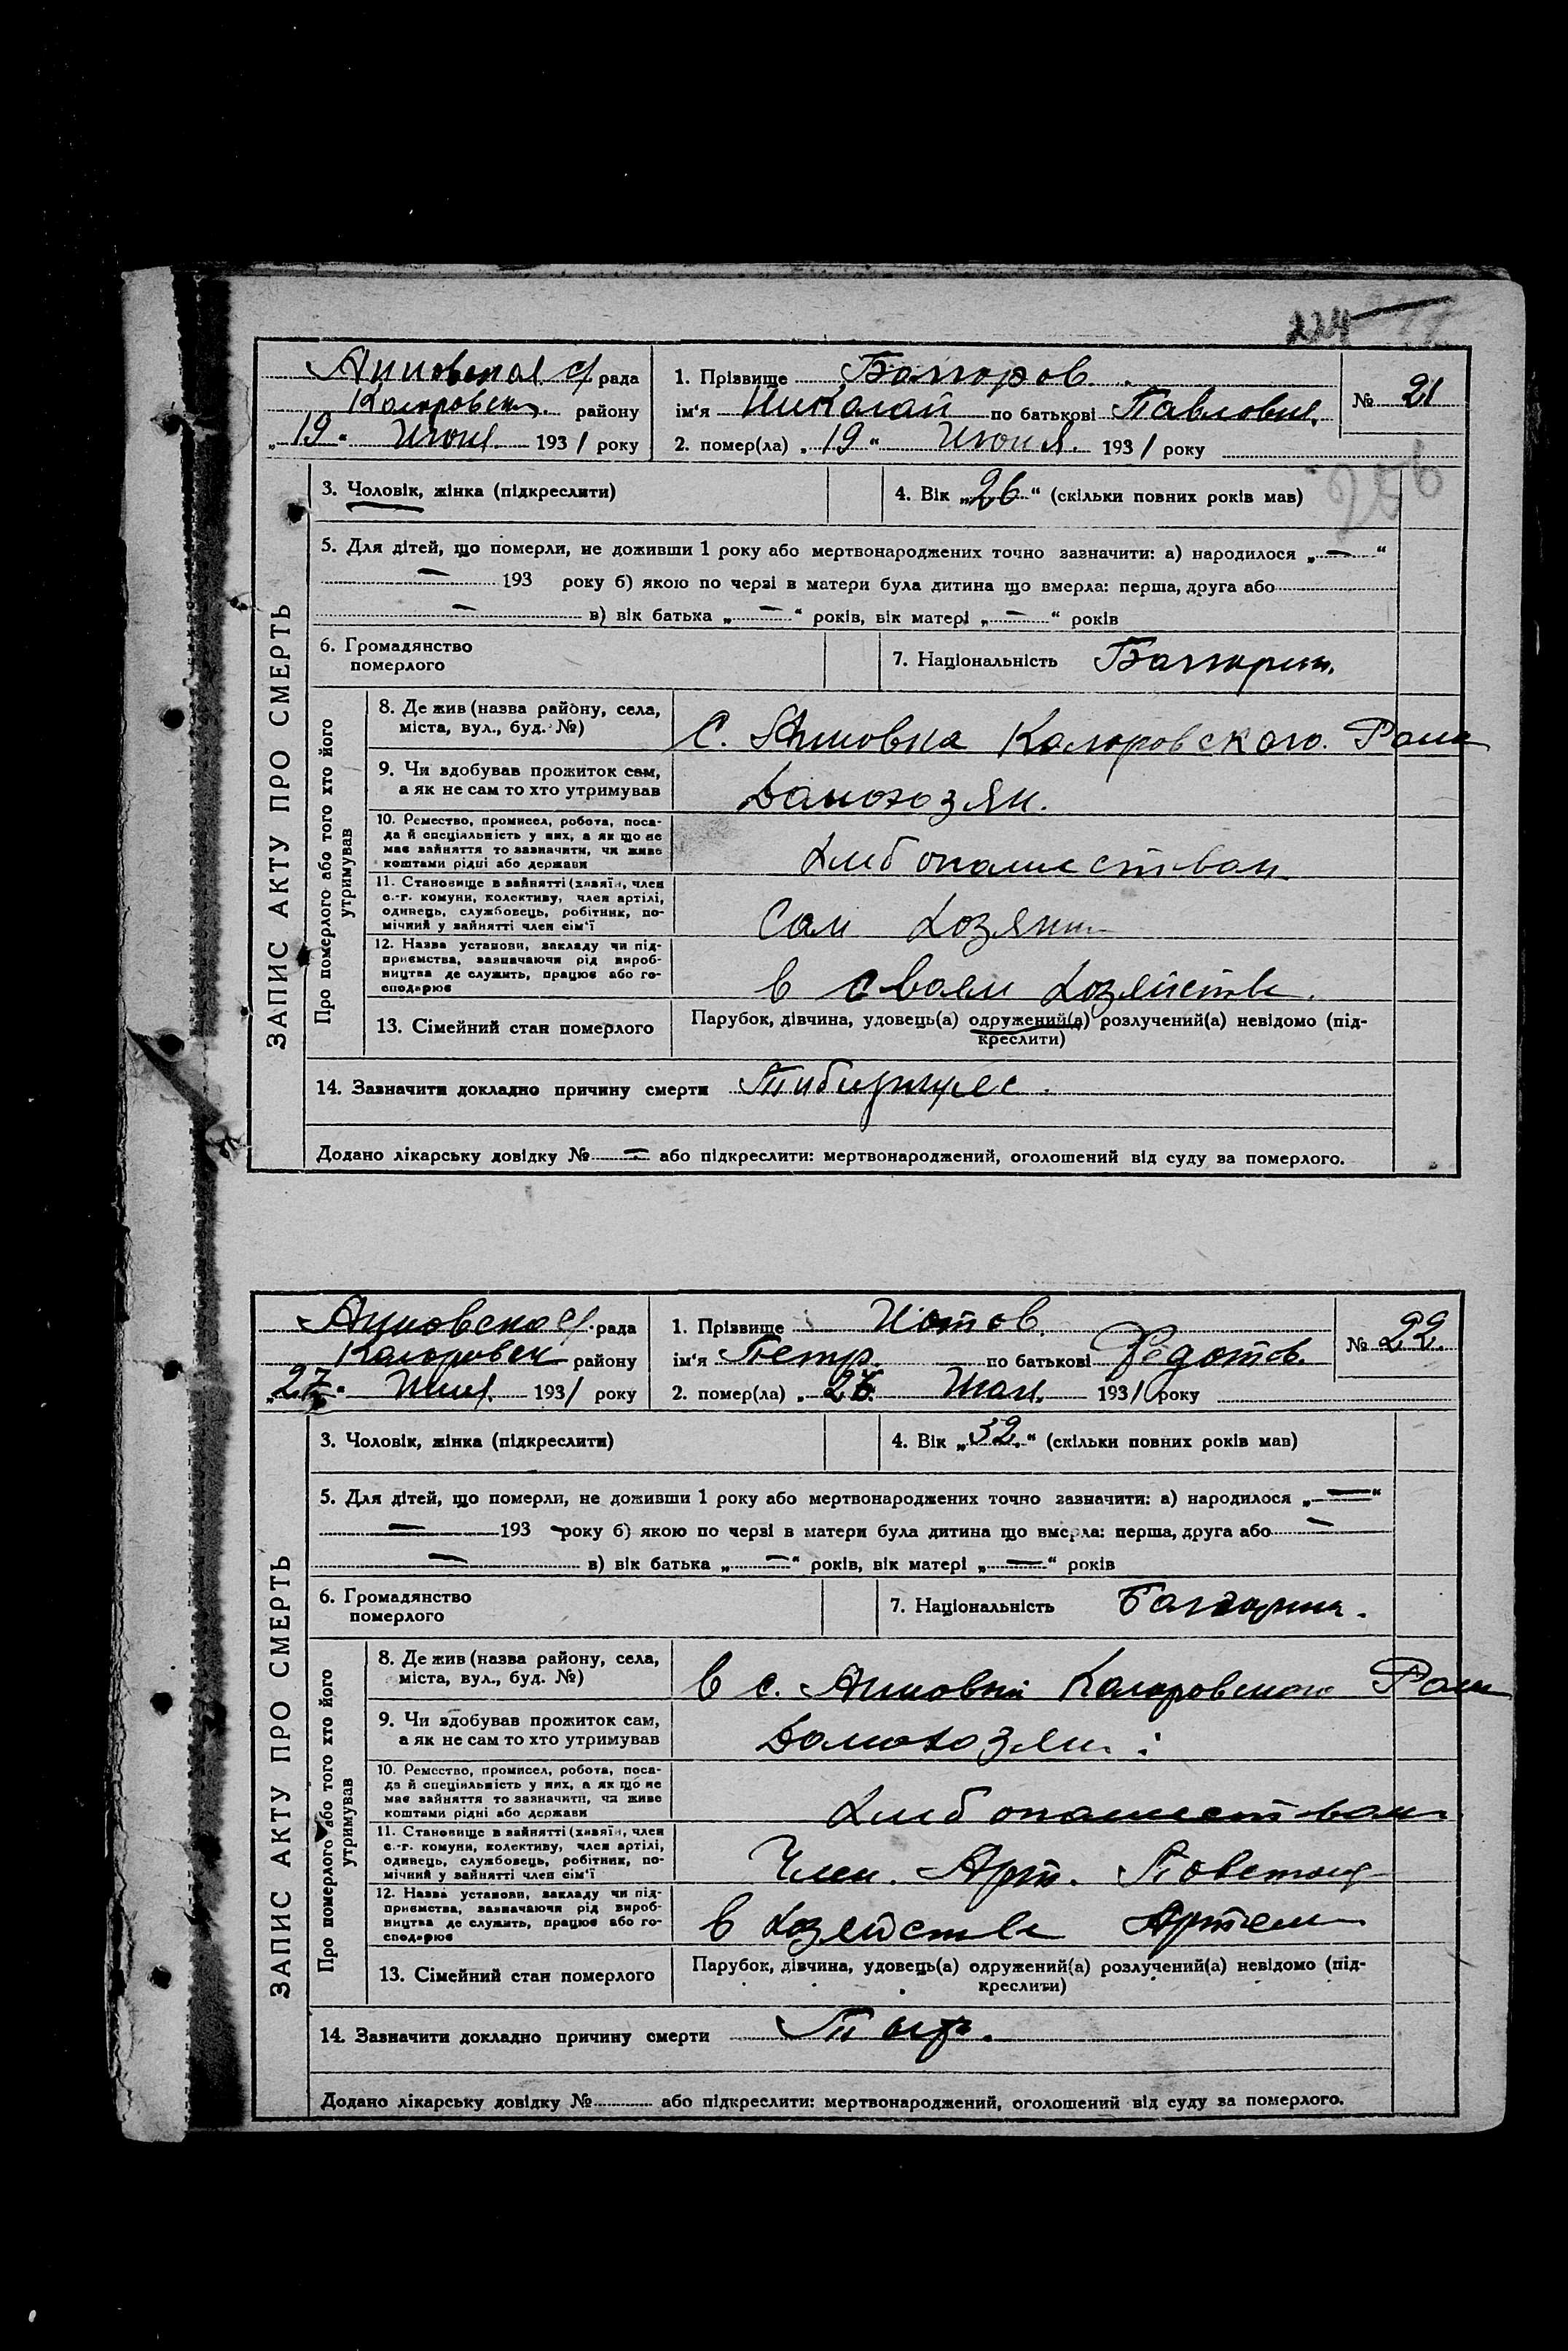 224
Анновская с/рада
Коларовск. району
„19“ Июня 1931 року
1. Прізвище Болгоров
ім'я Николай по батькові Павлович.
2. помер(ла) „19“ Июня. 1931 року
№ 21
256
ЗАПИС АКТУ ПРО СМЕРТЬ
3. Чоловік, жінка (підкреслити)
4. Вік „26“ (скільки повних років мав)
5. Для дітей, що померли, не доживши 1 року або мертвонароджених точно зазначити: а) народилося „—“
— 193 року б) якою по черзі в матери була дитина що вмерла: перша, друга або
— в) вік батька „—“ років, вік матері „—“ років
6. Громадянство
померлого
7. Національність Болгорин.
Про померлого або того хто його
утримував
8. Де жив (назва району, села,
міста, вул., буд. №)
С. Анновка Коларовского. Рана
9. Чи здобував прожиток сам,
а як не сам то хто утримував
Домохозяин.
10. Ремество, промисел, робота, поса-
да й спеціяльність у них, а як що не
має зайняття то зазначити, чи живе
коштами рідні або держави
11. Становище в зайнятті (хазяїн, член
с.-г. комуни, колективу, член артілі,
одинець, службовець, робітник, по-
мічний у зайнятті член сім'ї
Сам хозяин
12. Назва установи, закладу чи під-
приємства, зазначаючи рід вироб-
ництва де служить, працює або го-
сподарює
в своем хозяйстве.
13. Сімейний стан померлого
Парубок, дівчина, удовець(а) одружений(а) розлучений(а) невідомо (під-
креслити)
14. Зазначити докладно причину смерти
Додано лікарську довідку № — або підкреслити: мертвонароджений, оголошений від суду за померлого.
Анновска с/рада
Коларовск району
„27“ 1931 року
1. Прізвище
ім'я Петр. по батькові Федотов.
2. помер(ла) 1931 року
№ 22.
ЗАПИС АКТУ ПРО СМЕРТЬ
3. Чоловік, жінка (підкреслити)
4. Вік „32.“ (скільки повних років мав)
5. Для дітей, що померли, не доживши 1 року або мертвонароджених точно зазначити: а) народилося „—“
— 193 року б) якою по черзі в матери була дитина що вмерла: перша, друга або —
— в) вік батька „—“ років, вік матері „—“ років
6. Громадянство
померлого
7. Національність Болгорин.
Про померлого або того хто його
утримував
8. Де жив (назва району, села,
міста, вул., буд. №)
в с. Анновки Коларовского Рана
9. Чи здобував прожиток сам,
а як не сам то хто утримував
Домохозяин.
10. Ремество, промисел, робота, поса-
да й спеціяльність у них, а як що не
має зайняття то зазначити, чи живе
коштами рідні або держави
11. Становище в зайнятті (хазяїн, член
с.-г. комуни, колективу, член артілі,
одинець, службовець, робітник, по-
мічний у зайнятті член сім'ї
Член. Арт.
12. Назва установи, закладу чи під-
приємства, зазначаючи рід вироб-
ництва де служить, працює або го-
сподарює
в хозяйстве Артели
13. Сімейний стан померлого
Парубок, дівчина, удовець(а) одружений(а) розлучений(а) невідомо (під-
креслити)
14. Зазначити докладно причину смерти Тиф.
Додано лікарську довідку № або підкреслити: мертвонароджений, оголошений від суду за померлого.